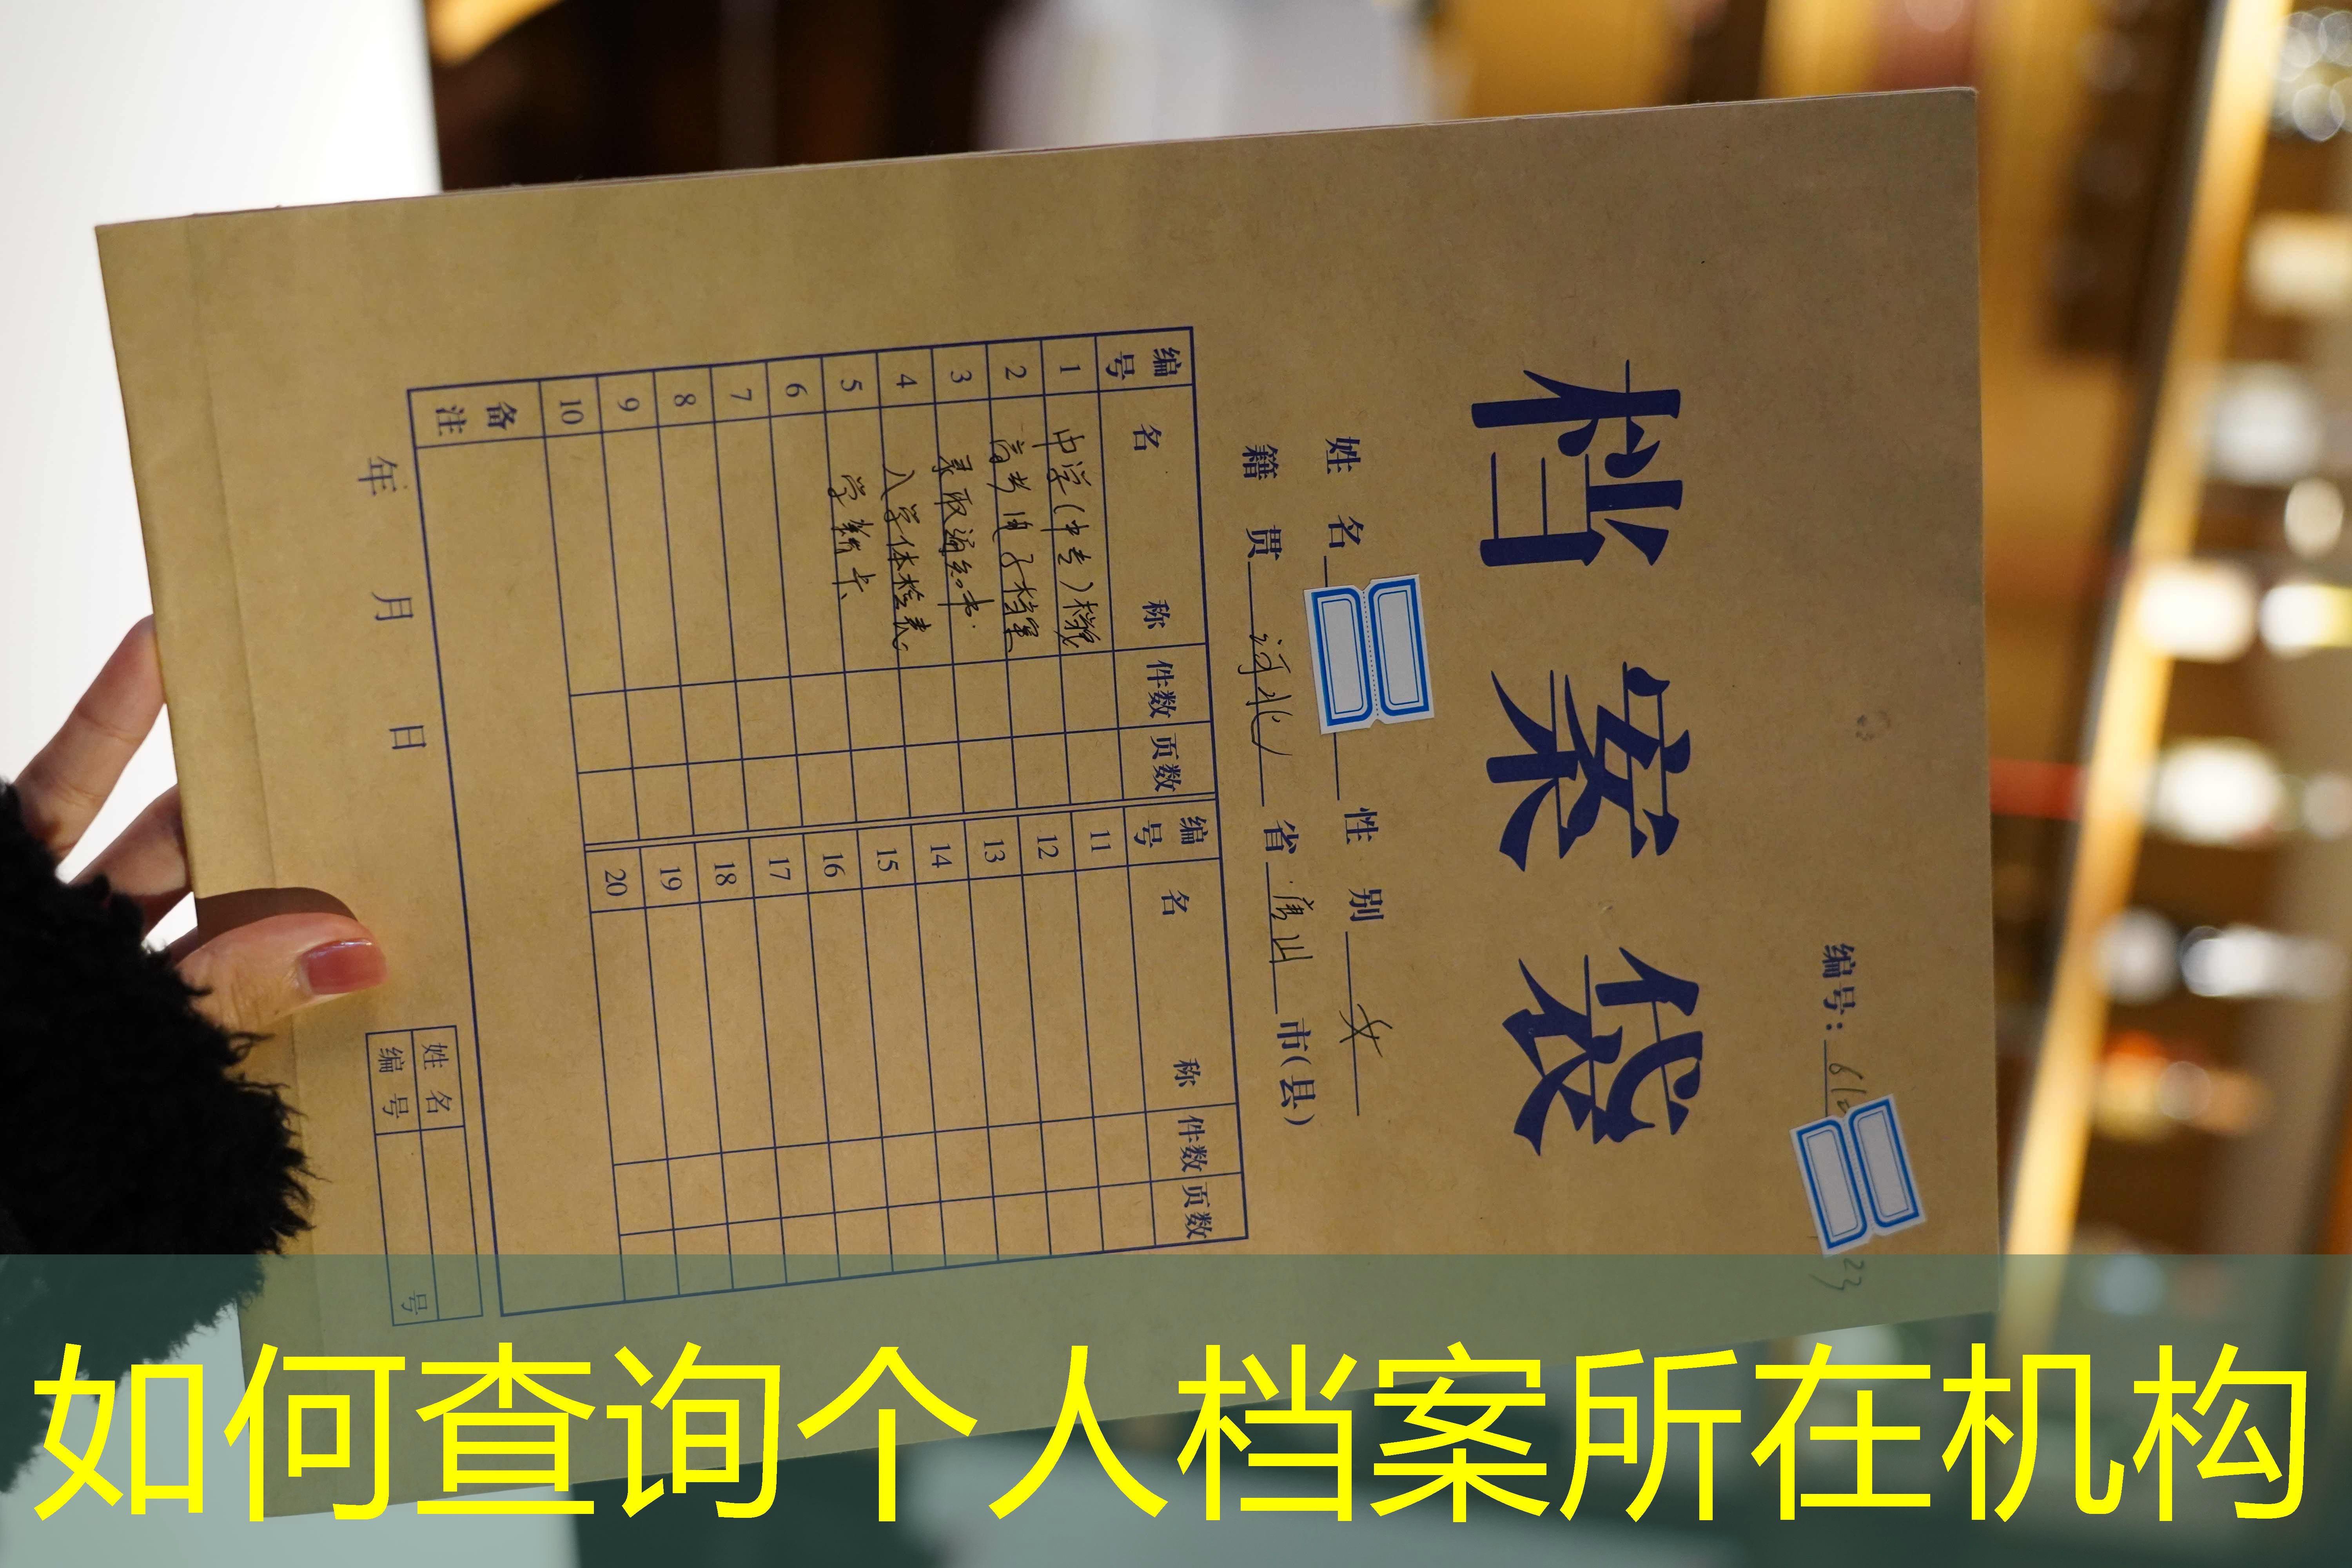 编号：
23
档案袋
姓名 性别 女
籍贯 河北 省 唐山 市(县)
编号 名称 件数 页数 编号 名称 件数 页数
1 中学(中专)档案 11
2 高考电子档案 12
3 录取通知书. 13
4 入学体检表 14
5 学籍卡 15
6 16
7 17
8 18
9 19
10 20
备注
年 月 日
姓名
编号 号
如何查询个人档案所在机构